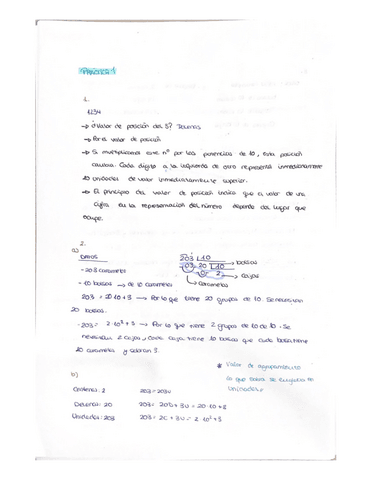 PRÁCTICA 1
1.
1234
→ ¿Valor de posición del 3? Decenas
→ Por el valor de posición
→ Si multiplicamos ese nº por las potencias de 10, esta posición
cambia. Cada dígito a la izquierda de otro representa inmediatamente
10 unidades de valor inmediatamente superior.
→ El principio del valor de posición indica que el valor de una
cifra en la representación del número depende del lugar que
ocupe.
2.
a)
DATOS
- 203 caramelos
- 10 bolsas → de 10 caramelos
203 10 → bolsas
03 20 10
0 2 → cajas
→ caramelos
203 = 20·10+3 → Por lo que tiene 20 grupos de 10. Se necesitan
20 bolsas.
- 203 = 2·10²+3 → Por lo que tiene 2 grupos de 10 de 10. Se
necesitan 2 cajas, cada caja tiene 10 bolsas que cada bolsa tiene
10 caramelos y sobran 3.
* Valor de agrupamiento
lo que sobra se
unidades.
b)
Centenas: 2 203 = 203u
Decenas: 20 203 = 20D + 3u = 20·10+3
Unidades: 203 203 = 2C + 3u = 2·10²+3